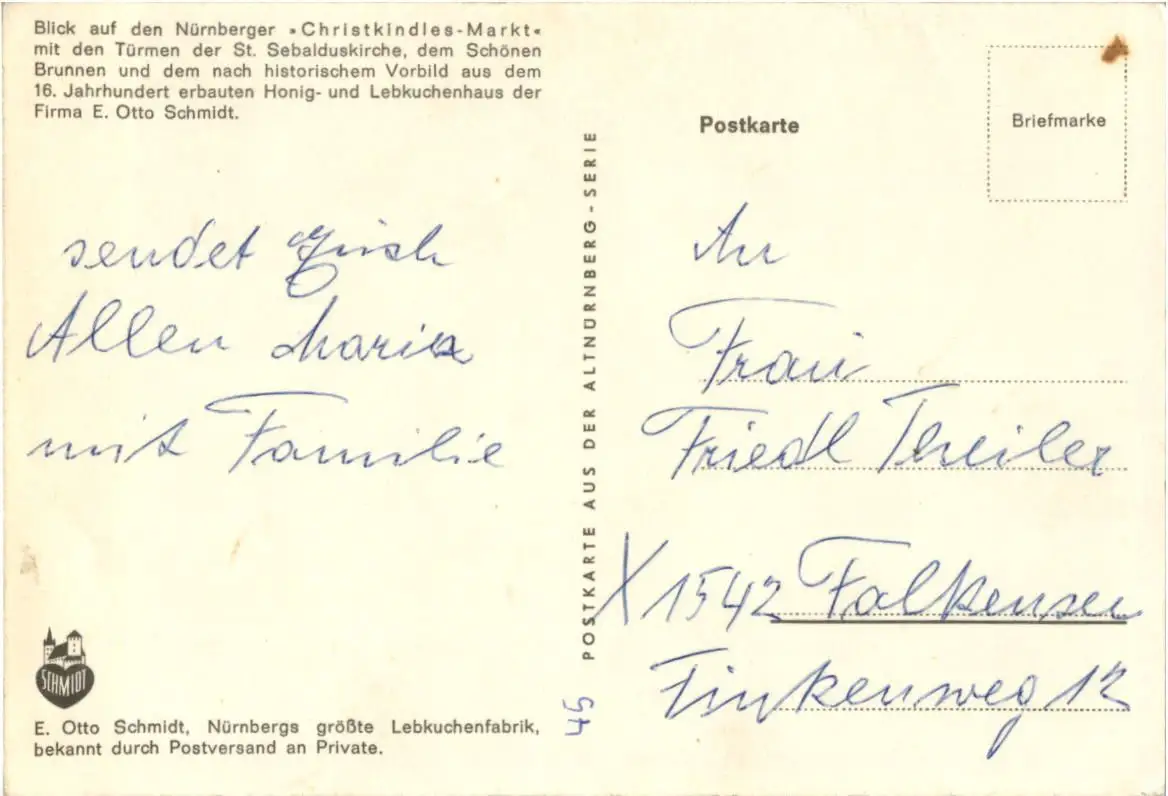 Blick auf den Nürnberger »Christkindles-Markt«
mit den Türmen der St. Sebalduskirche, dem Schönen
Brunnen und dem nach historischem Vorbild aus dem
16. Jahrhundert erbauten Honig- und Lebkuchenhaus der
Firma E. Otto Schmidt.
sendet
Allen Maria
mit Familie
SCHMIDT
E. Otto Schmidt, Nürnbergs größte Lebkuchenfabrik,
bekannt durch Postversand an Private.
POSTKARTE AUS DER ALTNÜRNBERG-SERIE
45
Postkarte
Briefmarke
An
Frau
Friedl Theiler
X 1542 Falkensee
Finkenweg 12